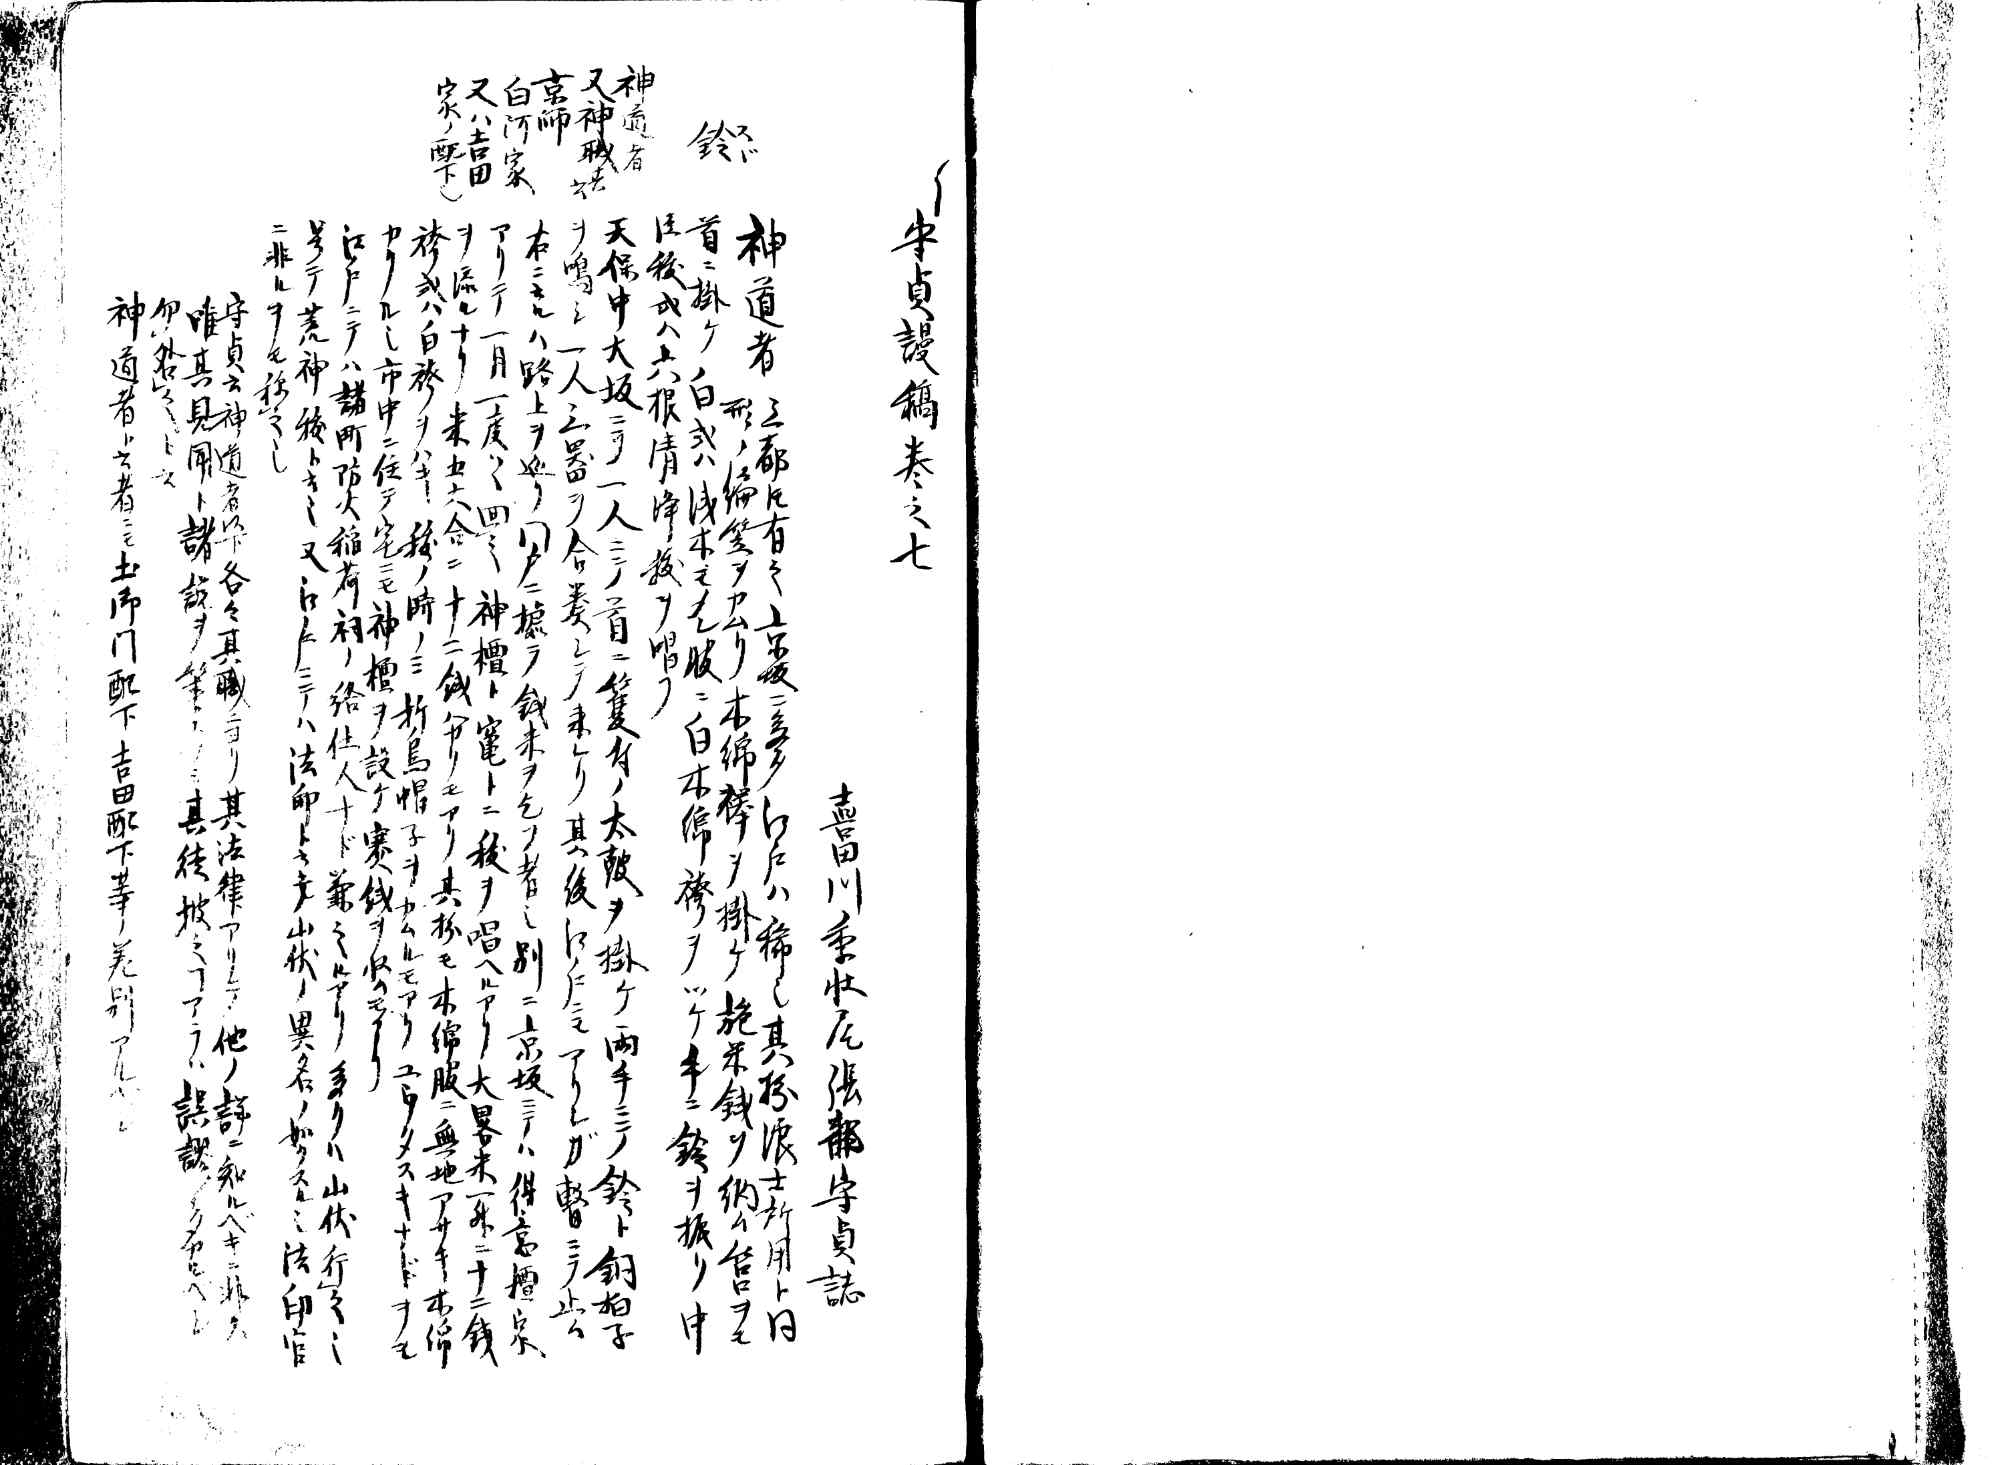 守貞謾稿巻之七
喜田川季荘尾張部守貞誌
神道者 三都トモ有之京坂ニ多ク江戸ハ稀也其扮浪士所用ト同
形ノ編笠ヲカムリ木綿襷ヲ掛ケ施米銭ヲ納ム筥ヲモ
首ニ掛ケ白或ハ浅木モメン服ニ白木綿袴ヲツケ手ニ鈴ヲ振リ中
臣秡或ハ六根清浄秡ヲ唱フ
天保中大坂ニテ一人ニテ首ニ羯台ノ太鼓ヲ掛ケ両手ニテ鈴ト銅拍子
ヲ鳴シ一人三器ヲ合奏シテ来レリ其後江戸ニモアリシガ暫ニテ止ム
右ニ云ルハ路上ヲ巡リ門戸ニ拠テ銭米ヲ乞フ者也別ニ京坂ニテハ得意檀家
アリテ一月一度ツヽ回之神檀ト竈トニ秡ヲ唱ヘルアリ大畧米一升ニ十二銭
ヲ添ルナリ米五六合ニ十二銭バカリモアリ其扮モ木綿服ニ無地アサキ木綿
袴或ハ白袴ヲハキ秡ノ時ノミ折烏帽子ヲカムルモアリユウダスキナドヲモ
カクル也市中ニ住テ宅ニモ神檀ヲ設ケ賽銭ヲ収ルモアリ
江戸ニテハ諸町防火稲荷祠ノ給仕人ナド兼之ルアリ多クハ山伏行之也
号テ荒神秡ト云也又江戸ニテハ法印ト云テ山伏ノ異名ノ如クスル也法印官
ニ非ルヲモ称之也
守貞云神道者以下各々其職ニヨリ其法律アリテ他ノ詳ニ知ルベキニ非ス
唯其見聞ト諸説ヲ筆スノミ其徒披之コアラハ誤謬ノ多カルベシ
勿咎之ト云
神道者ト云者ニモ土御門配下吉田配下等ノ差別アルベシ
鈴 スヾ
神道者
又神職ト云
京師
白河家
又ハ吉田
家ノ配下也